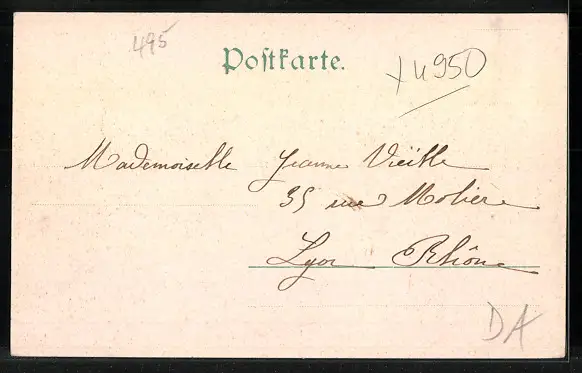 495
Postkarte.
+ 4950
Mademoiselle Jeanne Vieille
35 rue Molière
Lyon Rhône
DA